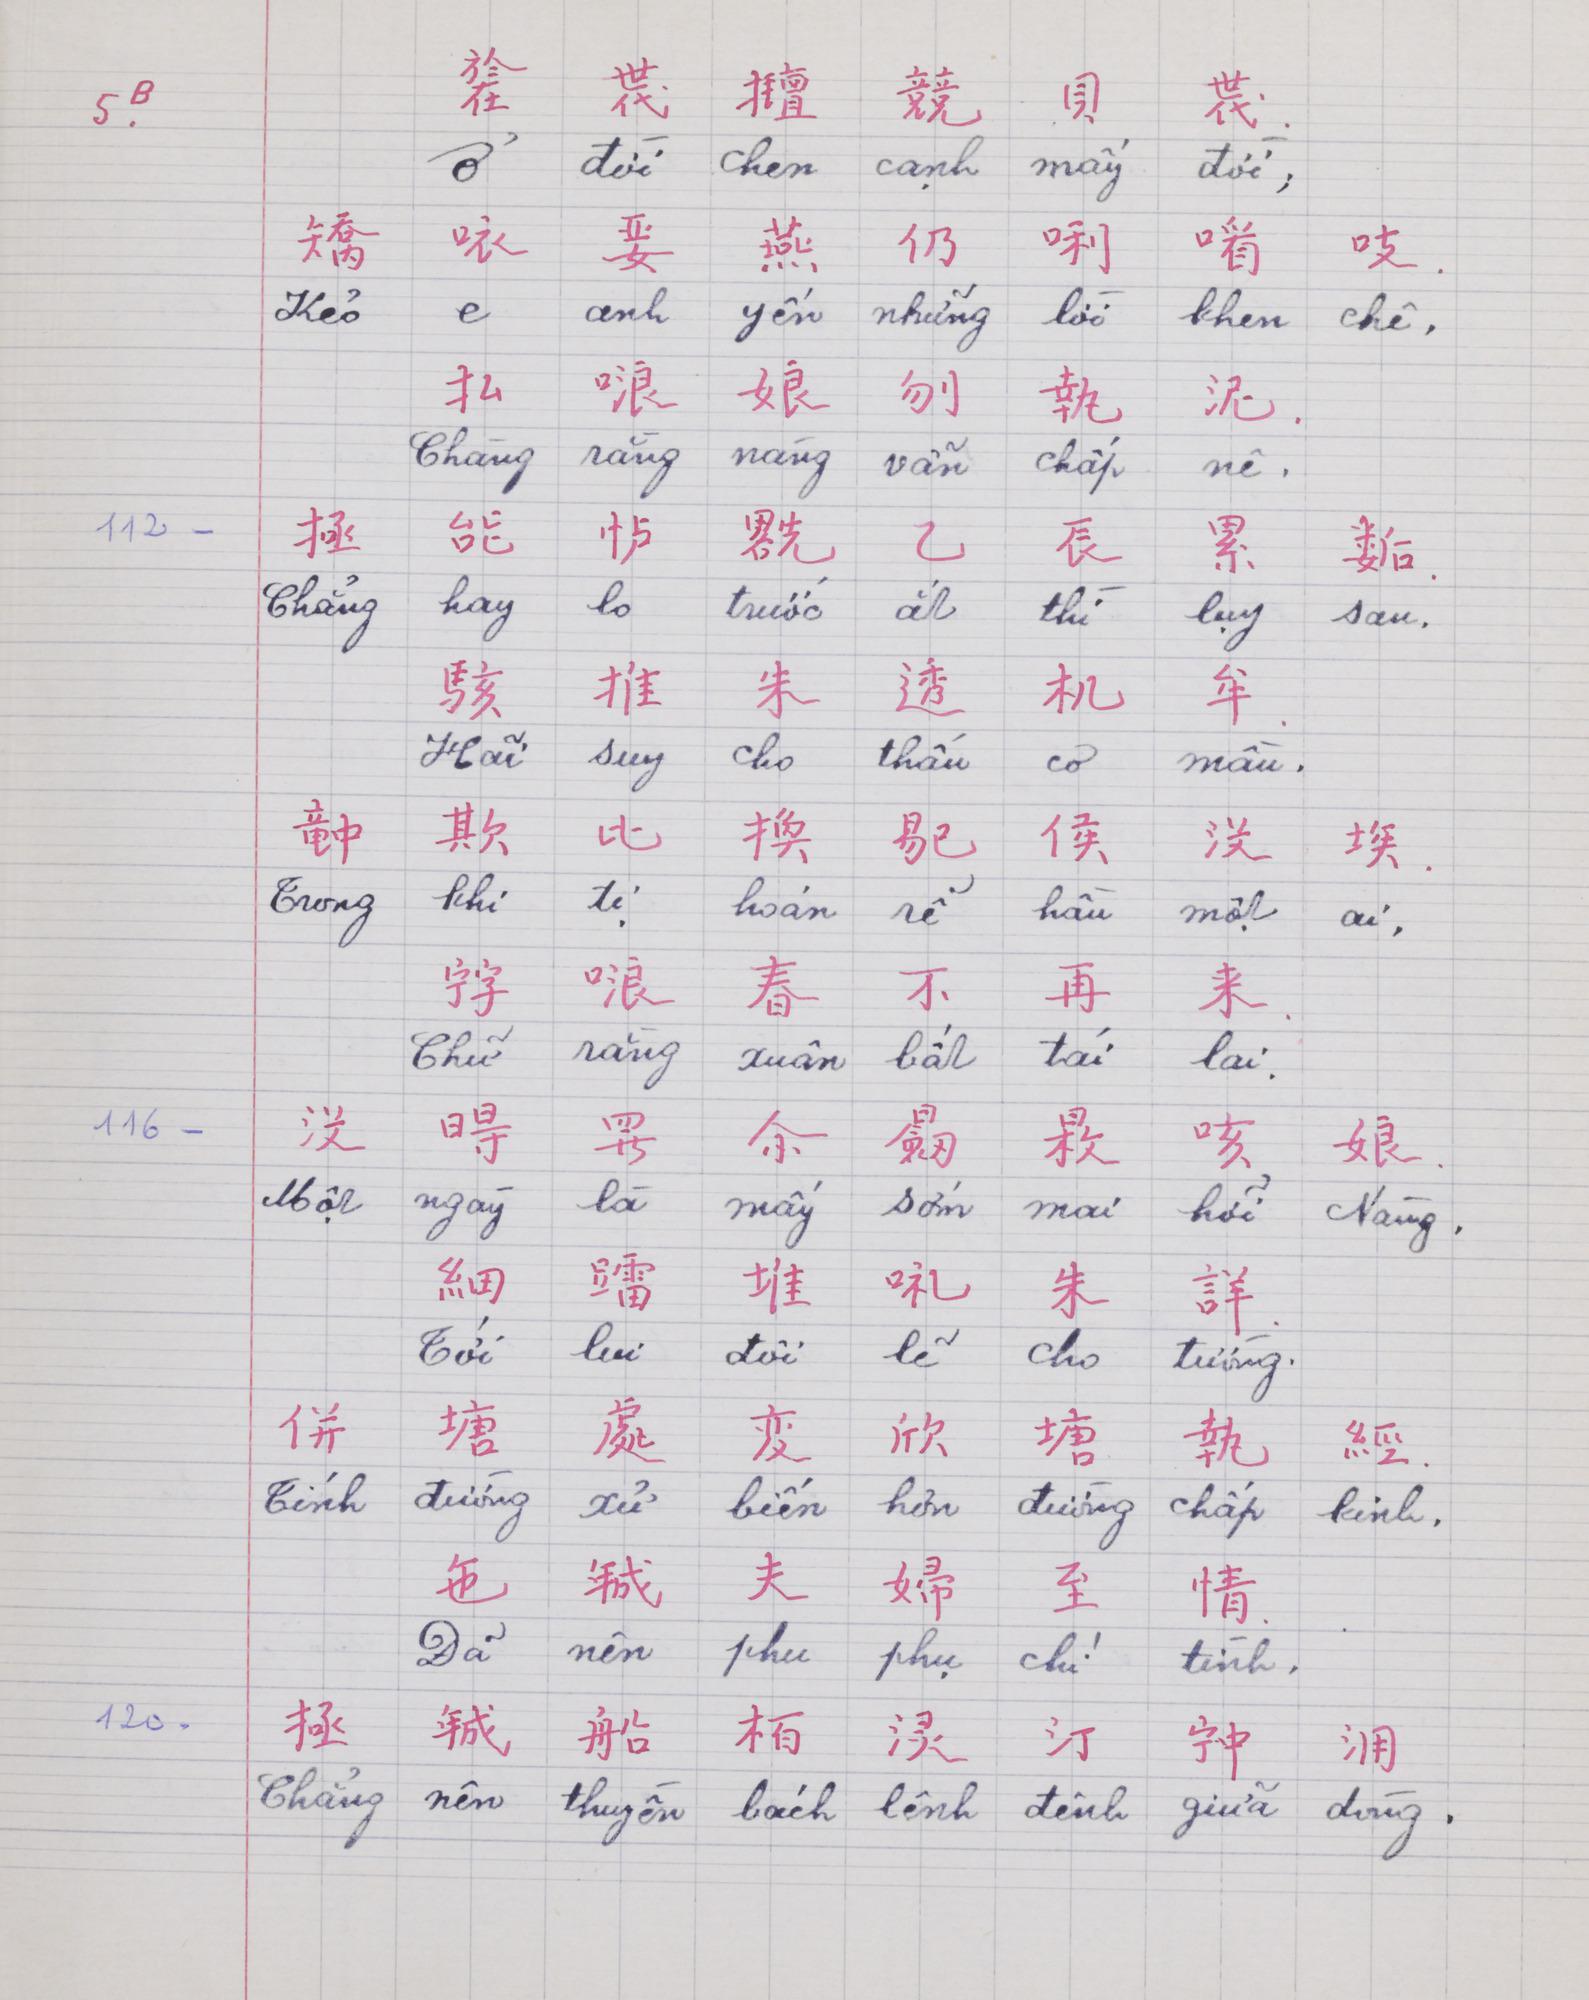 5.B
𣄒 𠁀 擅 競 貝 𠁀.
Ở đời chen cạnh mấy đời,
矯 㕈 妟 燕 仍 唎 𠸦 吱.
Kẻo e anh yến những lời khen chê,
払 哴 娘 刎 執 泥.
Chàng rằng nàng vẫn chấp nê.
112 - 拯 能 怗 𠓀 乙 辰 累 𡢐.
Chẳng hay lo trước ắt thì lụy sau.
駭 推 朱 透 机 牟.
Hãi suy cho thấu cơ mầu.
𥪝 欺 比 換 易 侯 没 埃.
Trong khi tị hoán rễ hầu một ai,
𡨸 哴 春 不 再 来.
Chữ rằng xuân bất tái lai.
116 - 没 𣈜 𱺵 余 𣌋 𣈕 咳 娘.
Một ngày là mấy sớm mai hỡi Nàng.
細 𨆢 堆 𠃅 朱 詳.
Tới lui đôi lẽ cho tường.
併 塘 處 変 欣 塘 執 經.
Tính đường xử biến hơn đường chấp kinh.
㐌 𢧚 夫 婦 至 情.
Đã nên phu phụ chí tình.
120. 拯 𢧚 船 栢 淥 汀 𡨌 𣳔
Chẳng nên thuyền bách lênh đênh giữa dòng.